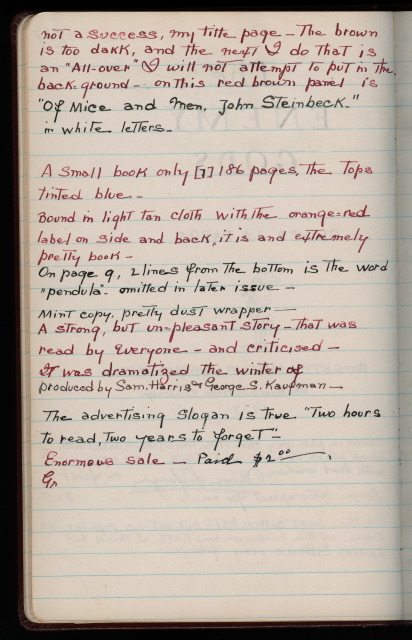 not a success, my title page - The brown
is too dark, and the next I do that is
an "All-over" I will not attempt to put in the
back-ground - on this red brown panel is
"Of Mice and Men, John Steinbeck."
in white letters -
A Small book only [7] 186 pages, the Tops
tinted blue -
Bound in light tan cloth with the orange=red
label on side and back, it is and extremely
pretty book -
On page 9, 2 lines from the bottom is the word
"pendula" - omitted in later issue -
Mint copy, pretty dust wrapper -
A strong, but un=pleasant story - that was
read by Everyone - and criticised -
It was dramatized the winter of
produced by Sam. Harris & George S. Kaufman -
The advertising Slogan is true "Two hours
to read, Two years to forget" -
Enormous sale - Paid $2.00 - .
Gr